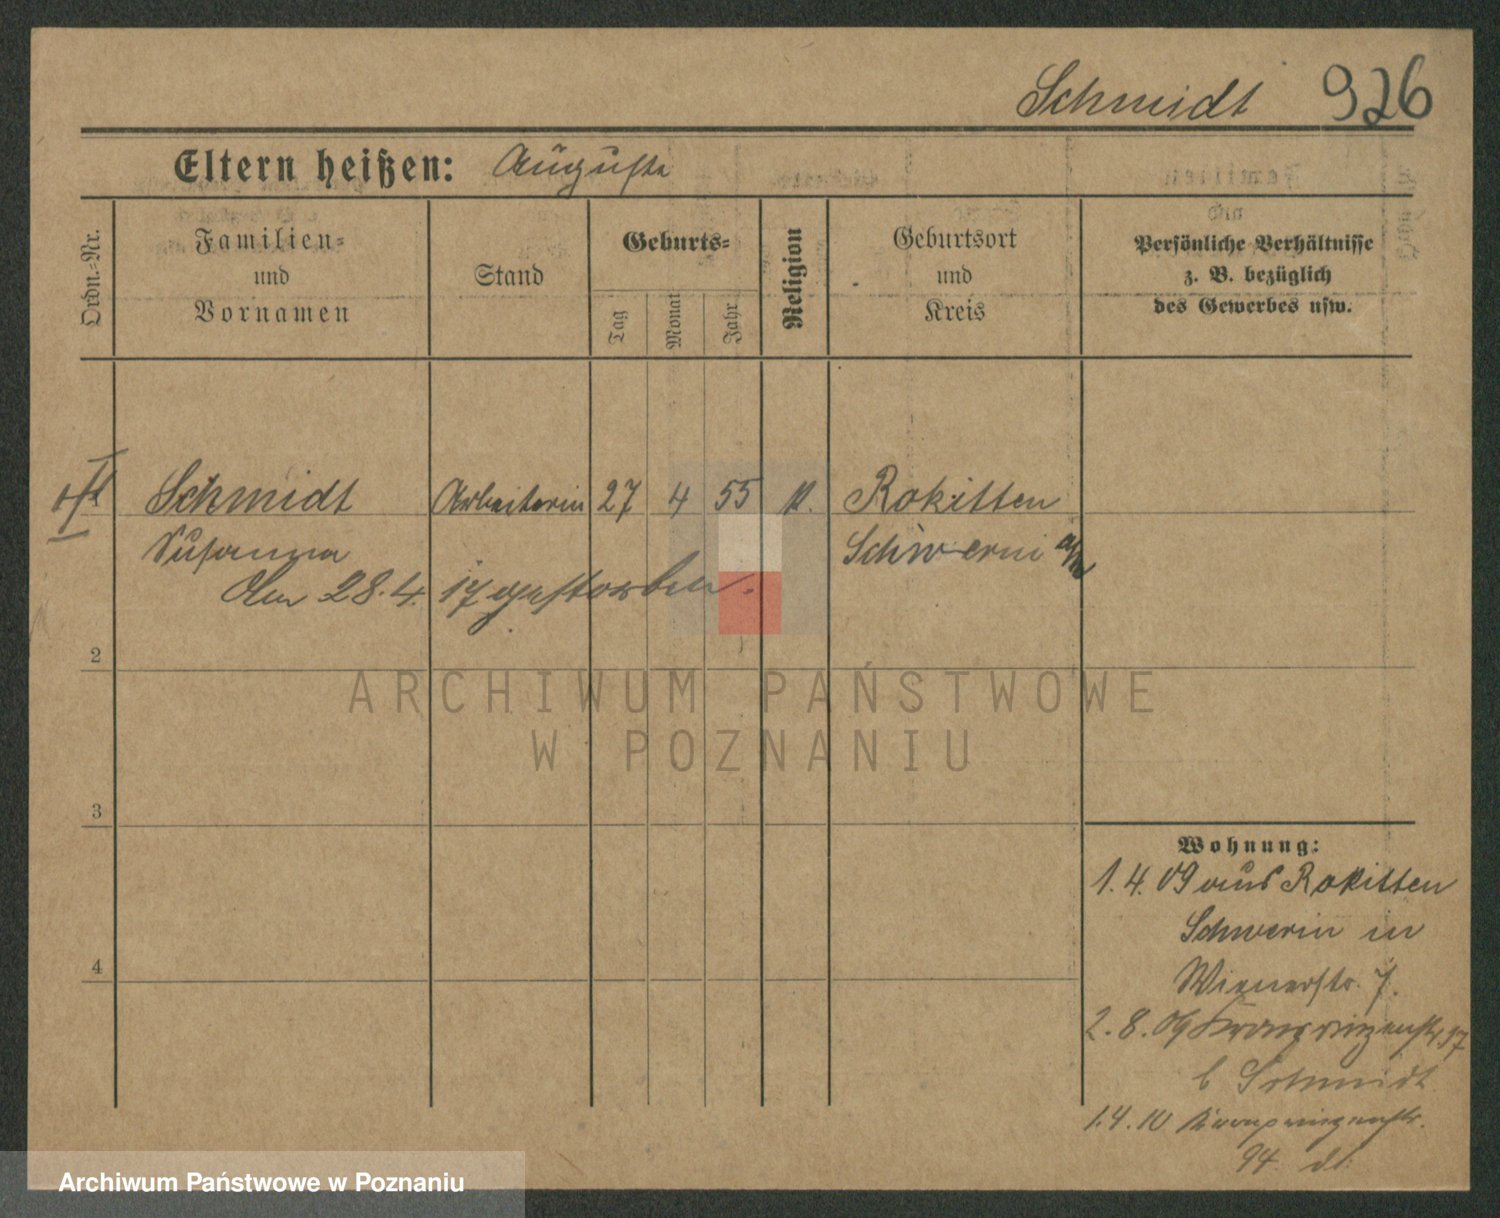 Schmidt 926
Eltern heißen: Auguste
Ordn.-Nr.
Familien-
und
Vornamen
Stand
Geburts-
Tag
Monat
Jahr
Religion
Geburtsort
und
Kreis
Persönliche Verhältnisse
z. B. bezüglich
des Gewerbes usw.
Schmidt Arbeiterin 27 4 55 Rokitten
Susanna Schwerin a/W
Am 28.4.17 gestorben.
2
3
4
ARCHIWUM PAŃSTWOWE
W POZNANIU
Wohnung:
1.4.09 aus Rokitten
Schwerin in
Wienerstr. 7.
2.8.09 Kronprinzenstr 37
b Schmidt
1.4.10 Kronprinzenstr.
94 dt.
Archiwum Państwowe w Poznaniu